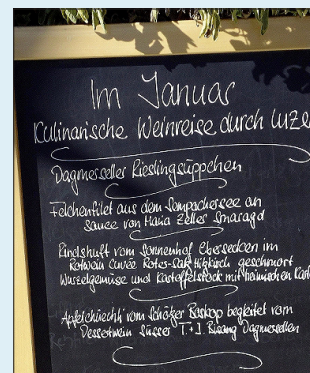 Im Januar
Kulinarische Weinreise durch Luze
Dagmerseller Rieslingsüppchen
Felchenfilet aus dem Sempachersee an
Sauce von Maria Zeller Smaragd
Rindshuft vom Sonnenhof Ebersecken im
Rotwein Cuvée Rotes- geschmort
Wurzelgemüse und Kartoffelstock mit heimischen Kart
Apfelchüechli vom Schöfer Boskop begleitet vom
Dessertwein Süsser T.+J. Bisang Dagmersellen